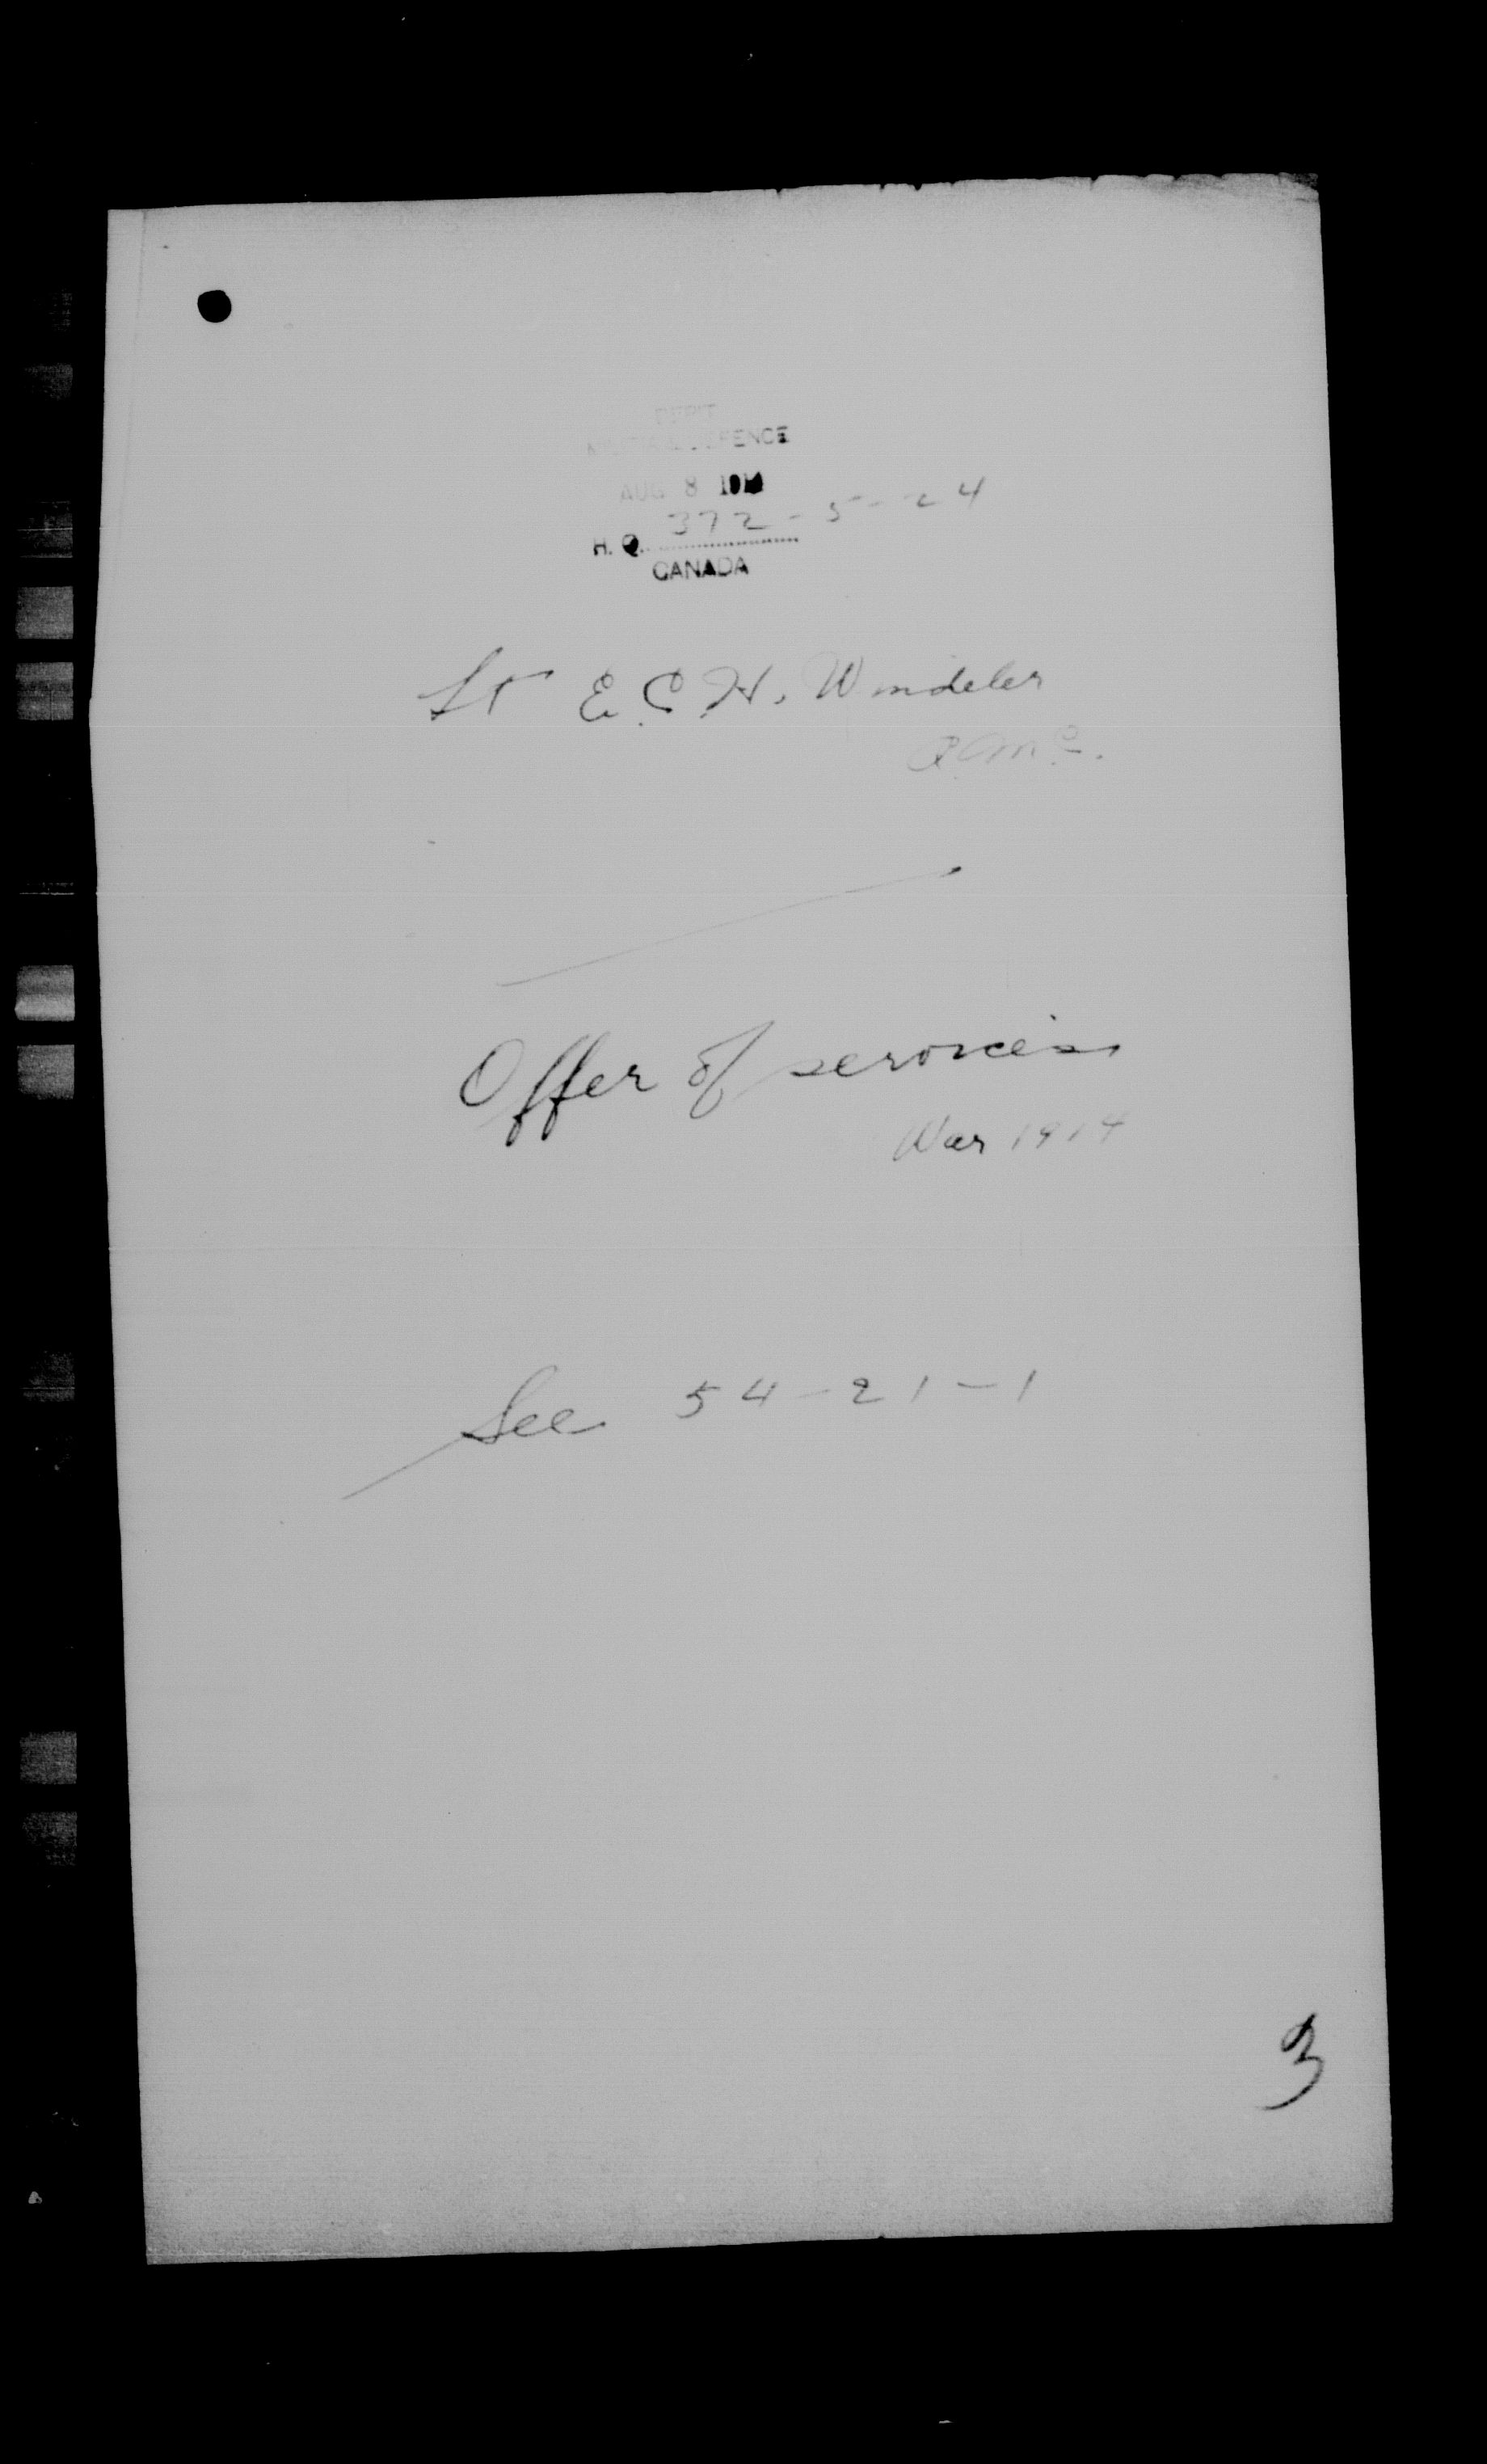 DEP'T
MILITIA & DEFENCE
AUG 8 1914
H. Q. 372-5-24
CANADA
Lt E. C. H. Windeler
Offer of services
War 1914
See 54-21-1
3